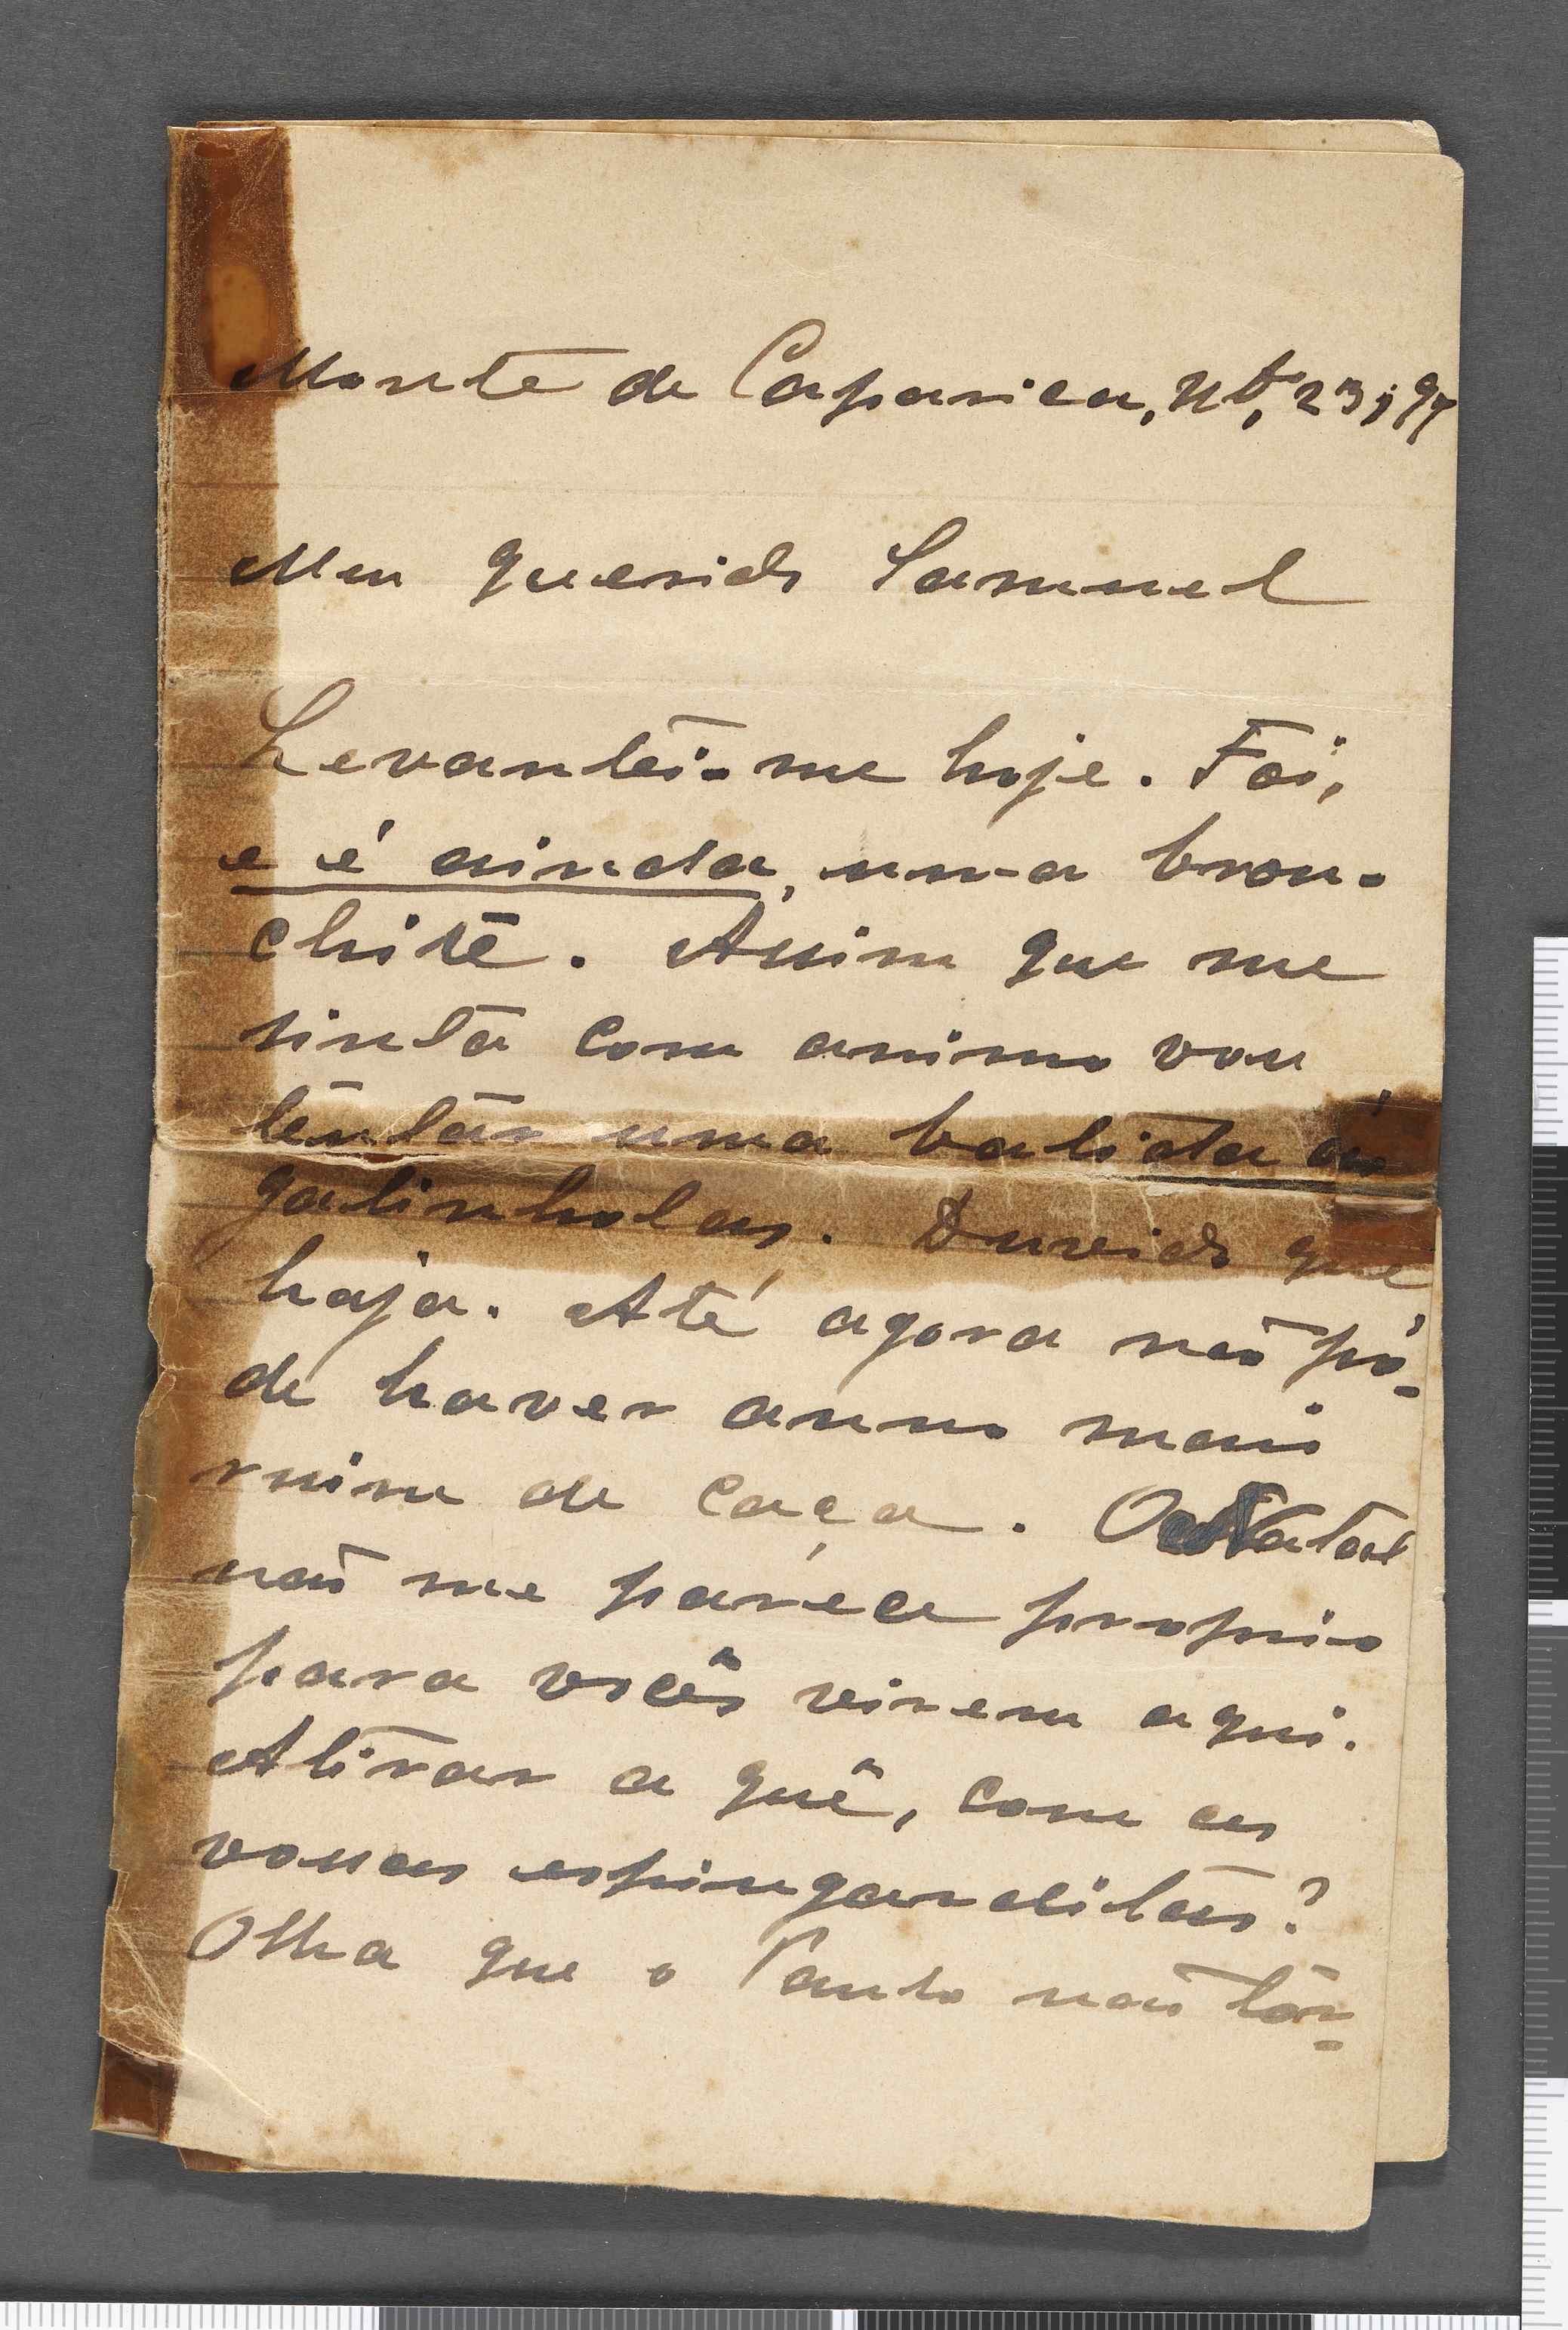 Monte de Caparica, 23, 97
Meu querido Samuel
Levantei-me hoje. Foi,
e é ainda, uma bron-
chite. Assim que me
sinta com animo vou
tentar uma batida ás
galinholas. Duvido que
haja. Até agora não pó-
de haver anno mais
ruim de caça. O Natal
não me parece proprio
para vocês virem aqui.
Atirar a quê, com as
vossas espingarditas?
Olha que o Paulo não tor-